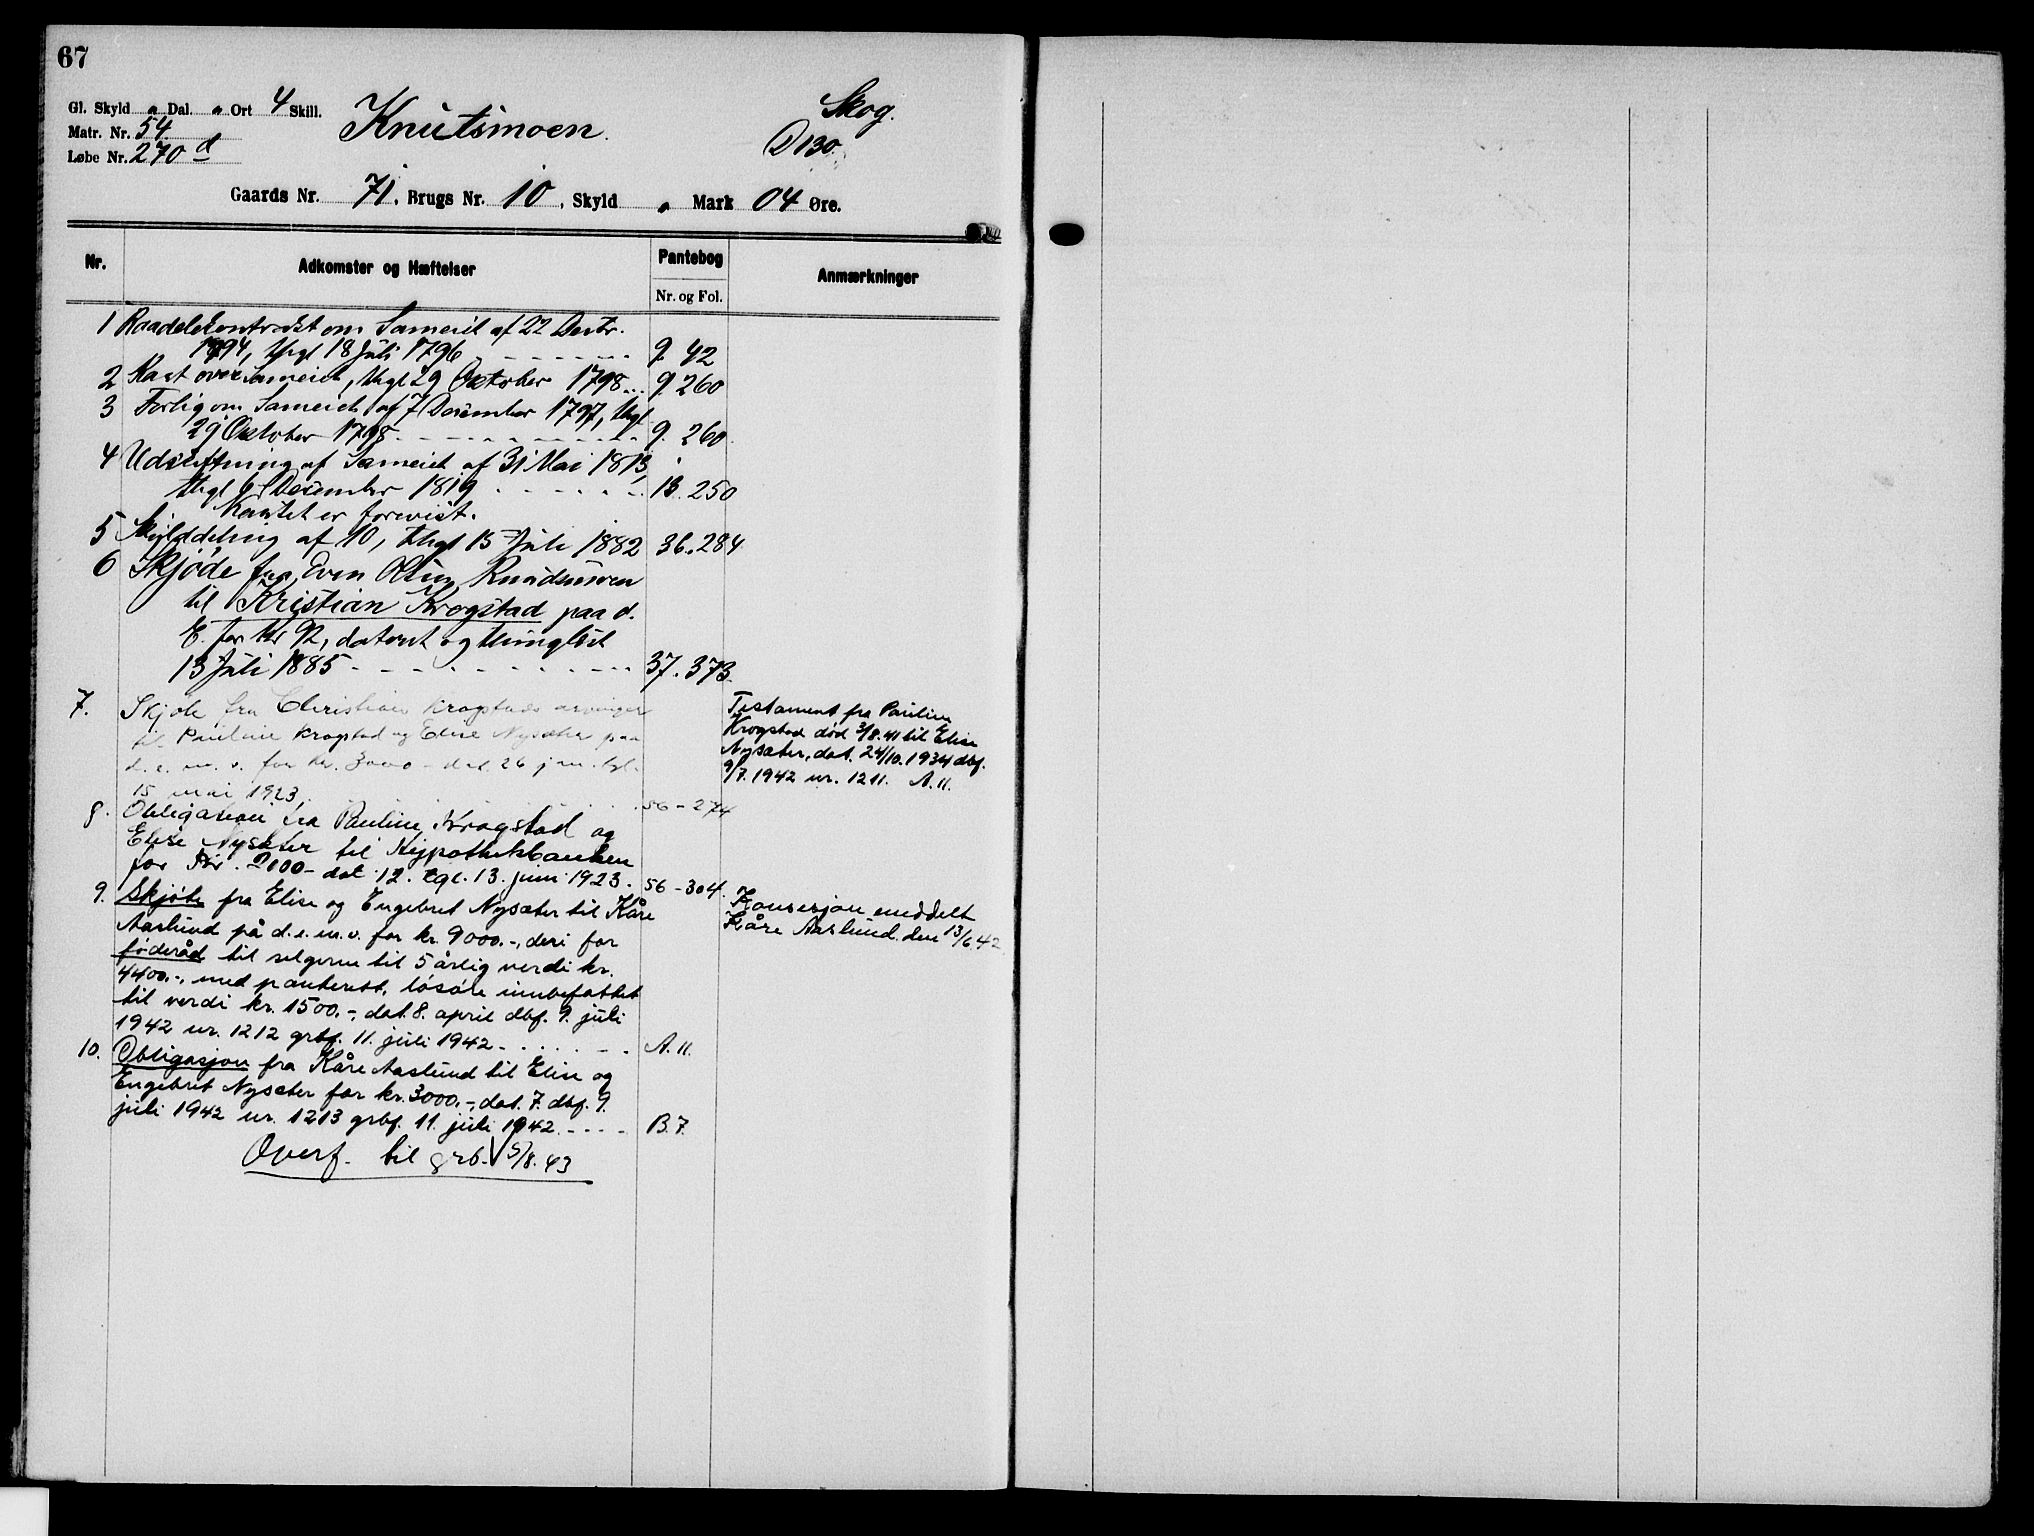 67
Gl. Skyld „ Dal. „ Ort 4 Skill.
Matr. Nr. 54
Løbe Nr. 270 d
Knutsmoen.
Skog.
D 130
Gaards Nr. 71, Brugs Nr. 10, Skyld „ Mark 04 Øre.
Nr.
Adkomster og Hæftelser
Pantebog
Nr. og Fol.
Anmærkninger
1 Raadelekontrakt om Sameiet af 22 Decbr.
1794, thgl 18 Juli 1796 9. 42
2 Kart over Sameiet, thgl 29 Oktober 1798 9. 260
3 Forlig om Sameiet af 7 December 1797, thgl
29 Oktober 1798 9. 260
4 Udskiftning af Sameiet af 31 Mai 1813,
thgl December 1819 13. 250
Kartet er forevist.
5 Skylddeling af 10, thgl 15 Juli 1882 36. 284
6 Skjøde fra Even Olsen Knudsmoen
til Kristian Krogstad paa d.
E. for Kr 92, datert og thinglæst
13 Juli 1885 37. 373
7. Skjøte fra Christian Krogstads arvinger
til Pauline Krogstad og Elise Nysæter paa
d. e. m. v. for kr. 3000 - dat. 26 jan. tgl.
15 mai 1923. 56 - 274
Testament fra Pauline
Krogstad død 3/8.41 til Elise
Nysæter, dat. 24/10.1934 dbf.
9/7.1942 nr. 1211. A.11.
8. Obligation fra Pauline Krogstad og
Elise Nysæter til Hypothekbanken
for Kr. 2000 - dat. 12. tgl. 13. juni 1923. 56 - 304.
9. Skjøte fra Elise og Engebret Nysæter til Kåre
Aaslund på d.e.m.v. for kr. 9000.-, deri for
føderåd til selgerne til 5 årlig verdi kr.
4400.-, med panterett, løsøre innbefattet
til verdi kr. 1500.-, dat. 8. april dbf. 9. juli
1942 nr. 1212 grbf. 11. juli 1942 A.11.
Konsesjon meddelt
Kåre Aaslund den 13/6.42
10. Obligasjon fra Kåre Aaslund til Elise og
Engebret Nysæter for kr. 3000.-, dat. 7. dbf. 9.
juli 1942 nr. 1213 grbf. 11. juli 1942 B.7.
Overf. til grb. V 5/8.43